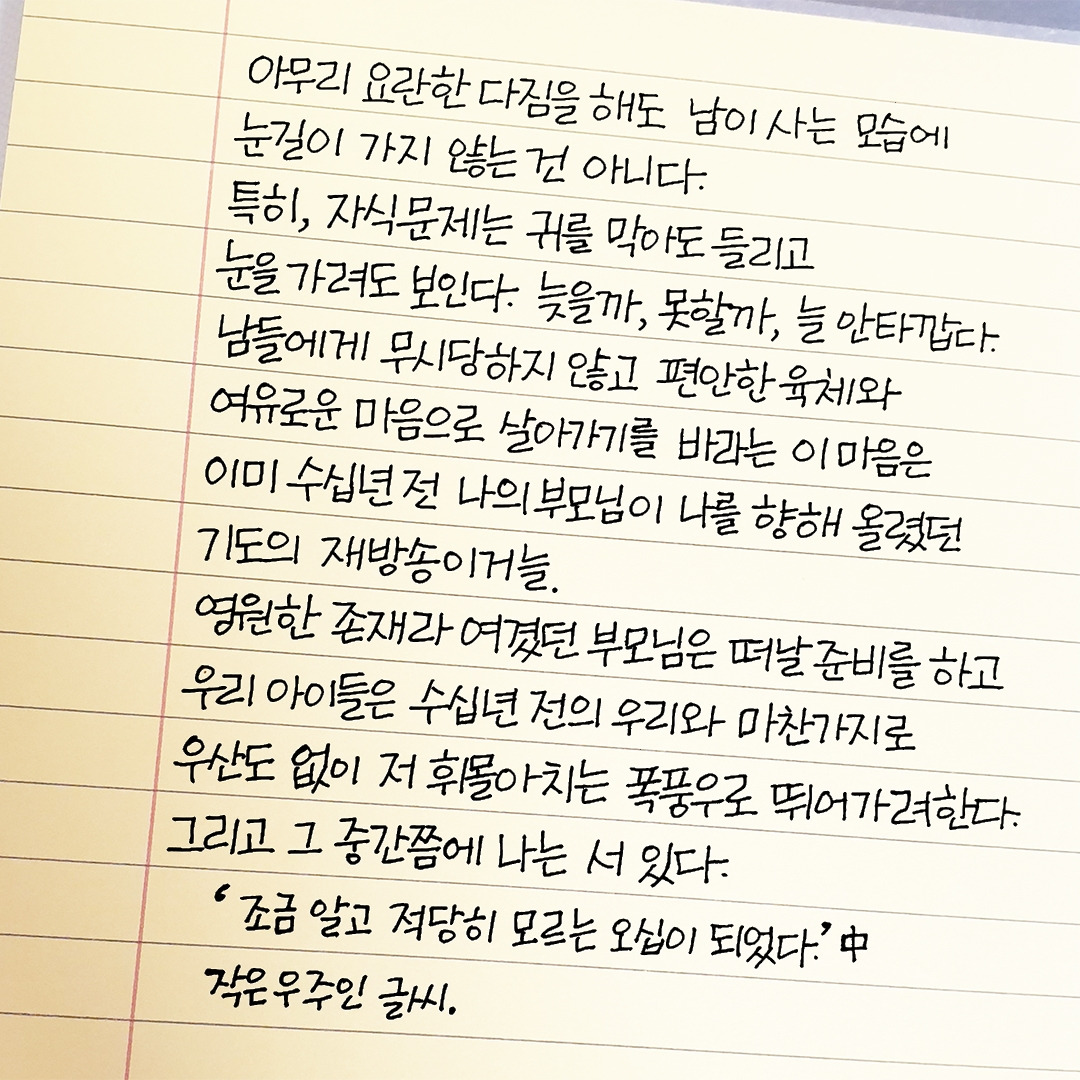 아무리 요란한 다짐을 해도 남이 사는 모습에
눈길이 가지 않는 건 아니다.
특히, 자식문제는 귀를 막아도 들리고
눈을 가려도 보인다. 늦을까, 못할까, 늘 안타깝다.
남들에게 무시당하지 않고 편안한 육체와
여유로운 마음으로 살아가기를 바라는 이 마음은
이미 수십년 전 나의 부모님이 나를 향해 올렸던
기도의 재방송이거늘.
영원한 존재라 여겼던 부모님은 떠날 준비를 하고
우리 아이들은 수십년 전의 우리와 마찬가지로
우산도 없이 저 휘몰아치는 폭풍우로 뛰어가려한다.
그리고 그 중간쯤에 나는 서 있다.
‘조금 알고 적당히 모르는 오십이 되었다.’ 中
작은우주인 글씨.